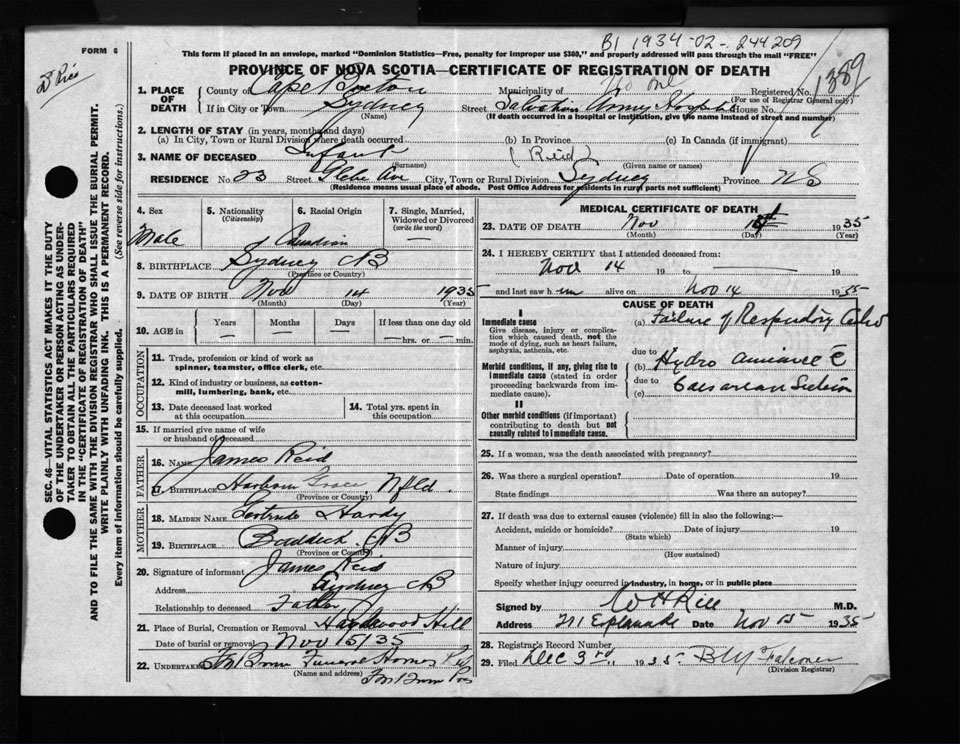 B1 1934-02-244209
FORM 6
This form if placed in an envelope, marked "Dominion Statistics—Free, penalty for improper use $300," and properly addressed will pass through the mail "FREE"
PROVINCE OF NOVA SCOTIA—CERTIFICATE OF REGISTRATION OF DEATH
1389
1. PLACE OF DEATH
County of Cape Breton
Municipality of
Registered No.
(For use of Registrar General only)
If in City or Town Sydney
(Name)
Street Salvation Army Hospital House No.
(If death occurred in a hospital or institution, give the name instead of street and number)
2. LENGTH OF STAY (in years, months and days)
(a) In City, Town or Rural Division where death occurred
(b) In Province
(c) In Canada (if immigrant)
3. NAME OF DECEASED Infant (Reid)
(Surname)
(Given name or names)
RESIDENCE No. 23 Street Glebe Ave City, Town or Rural Division Sydney Province N S
(Residence means usual place of abode. Post Office Address for residents in rural parts not sufficient)
SEC. 46—VITAL STATISTICS ACT MAKES IT THE DUTY
OF THE UNDERTAKER OR PERSON ACTING AS UNDER-
TAKER TO OBTAIN ALL THE PARTICULARS REQUIRED
IN THE "CERTIFICATE OF REGISTRATION OF DEATH"
AND TO FILE THE SAME WITH THE DIVISION REGISTRAR WHO SHALL ISSUE THE BURIAL PERMIT.
WRITE PLAINLY WITH UNFADING INK. THIS IS A PERMANENT RECORD.
Every item of information should be carefully supplied. (See reverse side for instructions.)
4. Sex
Male
5. Nationality
(Citizenship)
6. Racial Origin
Canadian
7. Single, Married, Widowed or Divorced
(write the word)
—
8. BIRTHPLACE Sydney CB
(Province or Country)
9. DATE OF BIRTH Nov 14 1935
(Month) (Day) (Year)
10. AGE in
Years Months Days If less than one day old
hrs. or min.
OCCUPATION
11. Trade, profession or kind of work as
spinner, teamster, office clerk, etc.
12. Kind of industry or business, as cotton-
mill, lumbering, bank, etc.
13. Date deceased last worked
at this occupation
14. Total yrs. spent in
this occupation
15. If married give name of wife
or husband of deceased
FATHER
16. Name James Reid
17. BIRTHPLACE Harbour Grace, Nfld.
(Province or Country)
MOTHER
18. MAIDEN NAME Gertrude Hardy
19. BIRTHPLACE Baddeck CB
(Province or Country)
20. Signature of informant James Reid
Address Sydney CB
Relationship to deceased Father
21. Place of Burial, Cremation or Removal Hardwood Hill
Date of burial or removal Nov 15/35
22. Undertaker Funeral Homes
(Name and address)
MEDICAL CERTIFICATE OF DEATH
23. DATE OF DEATH Nov 1935
(Month) (Day) (Year)
24. I HEREBY CERTIFY that I attended deceased from:
Nov 14 19 to 19
and last saw him alive on Nov 14 1935
CAUSE OF DEATH
I
Immediate cause
Give disease, injury or complica-
tion which caused death, not the
mode of dying, such as heart failure,
asphyxia, asthenia, etc.
(a) Failure of Respiratory
due to
Morbid conditions, if any, giving rise to
immediate cause (stated in order
proceeding backwards from im-
mediate cause).
(b) Hydro
due to
(c) Caesarean Section
II
Other morbid conditions (if important)
contributing to death but not
causally related to immediate cause.
25. If a woman, was the death associated with pregnancy?
26. Was there a surgical operation? Date of operation 19
State findings Was there an autopsy?
27. If death was due to external causes (violence) fill in also the following:—
Accident, suicide or homicide? Date of injury 19
(State which)
Manner of injury
(How sustained)
Nature of injury
Specify whether injury occurred in industry, in home, or in public place
Signed by M.D.
Address 211 Esplanade Date Nov 15 1935
28. Registrar's Record Number
29. Filed Dec 3rd 1935 Falconer
(Division Registrar)